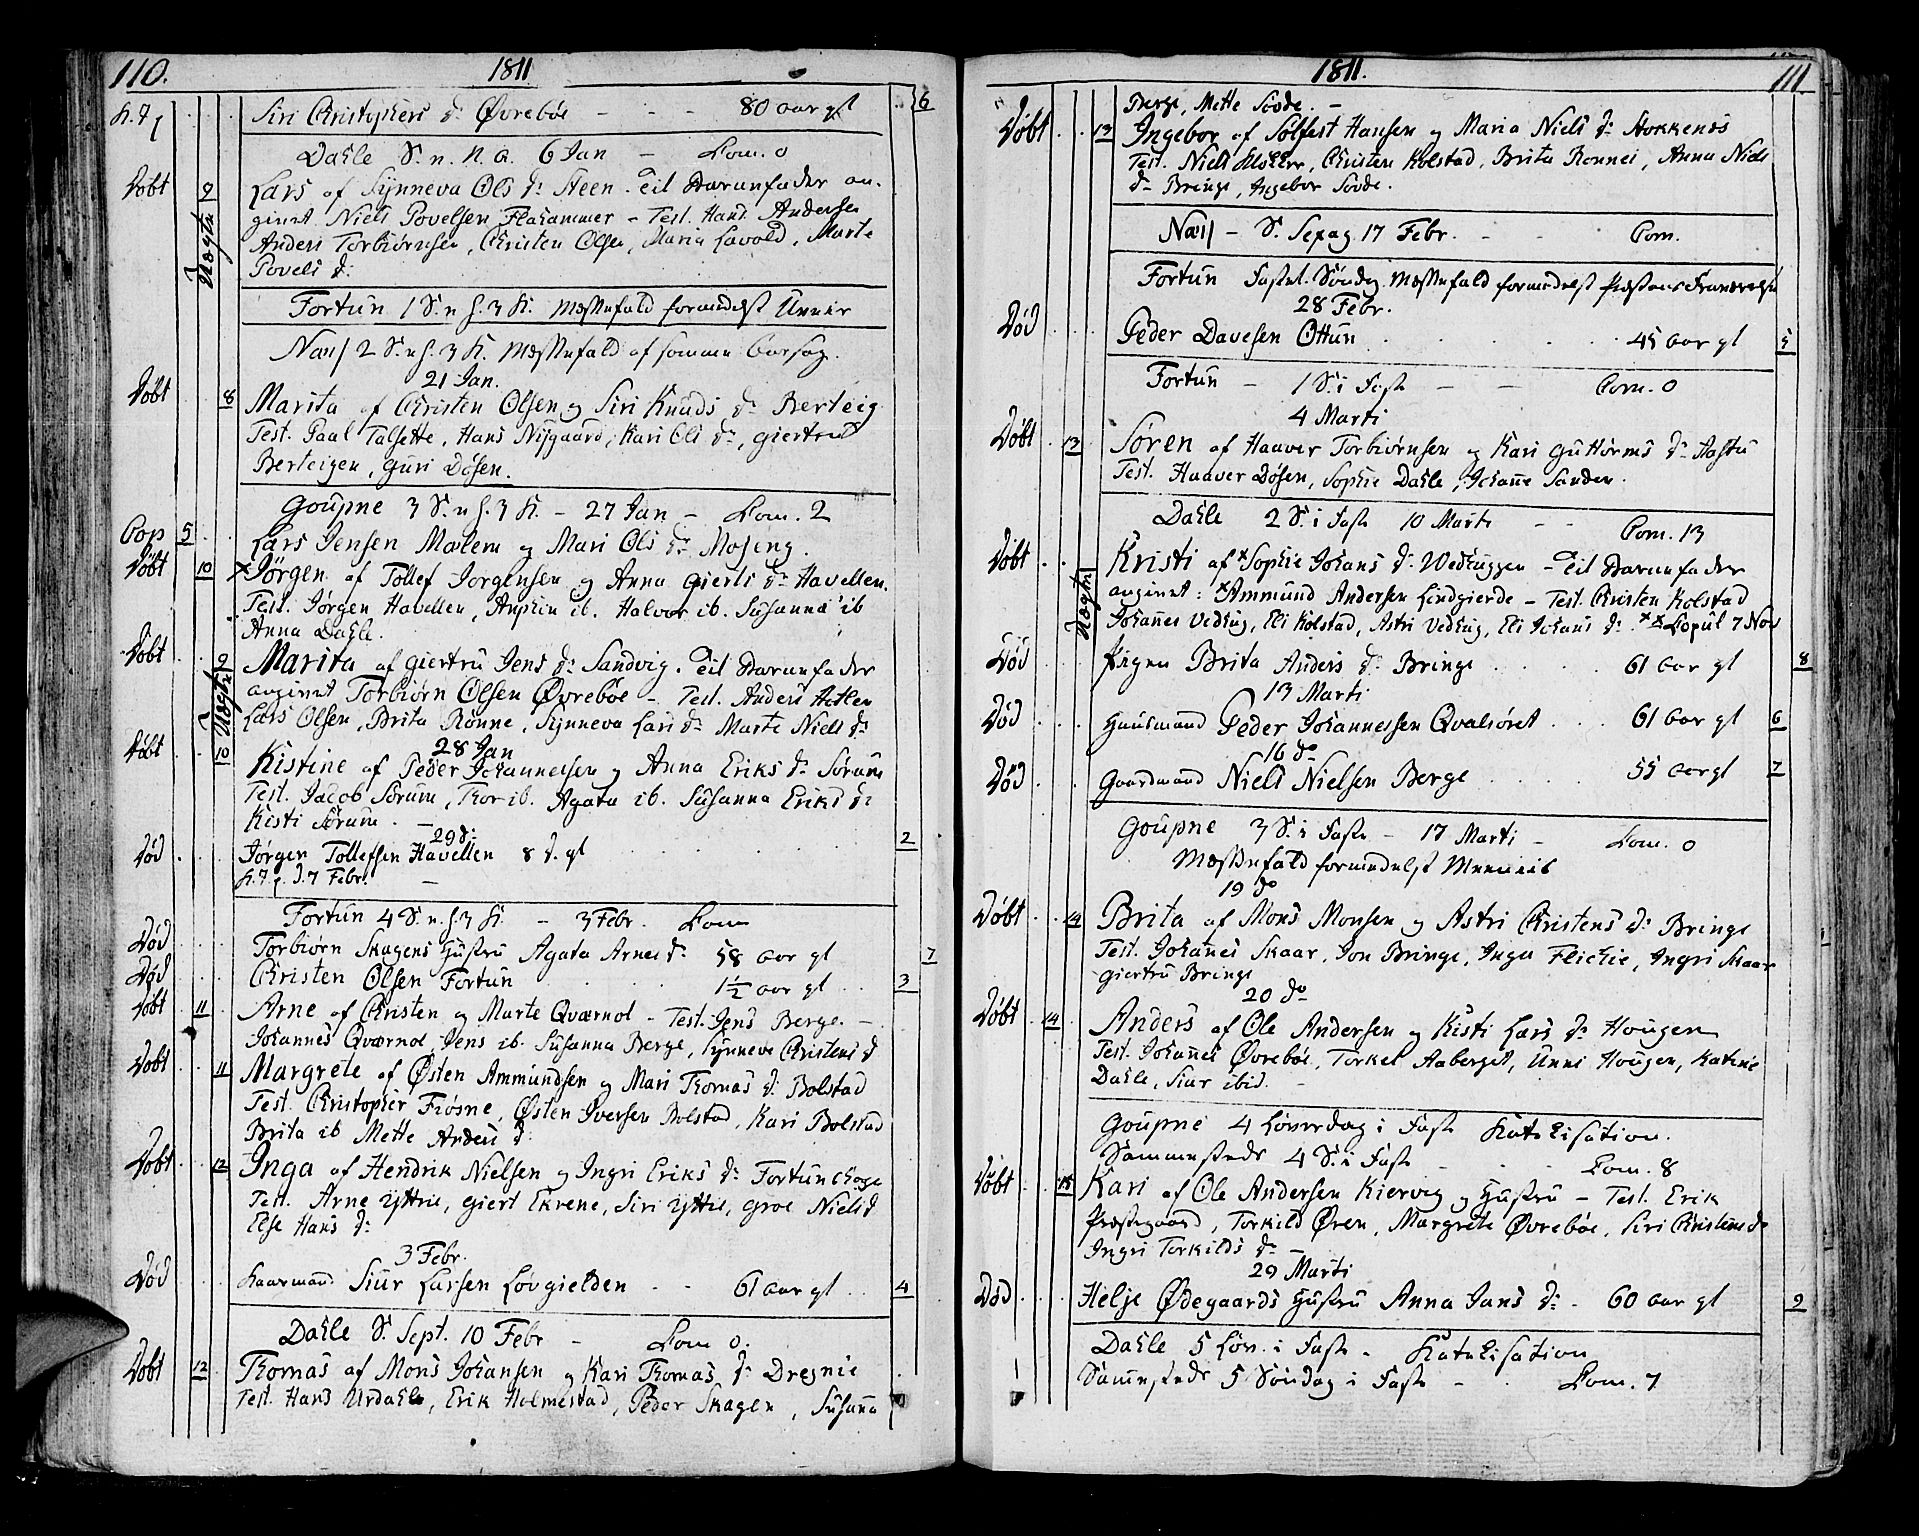 110. 1811
h. 7 j Siri Christophers d: Øvrebøe - - - 80 aar gl 6
Dahle S. n. N. A. 6 Jan - Com. 0
Døbt 9 Lars af Synneva Ols d: Steen. Til Barnefader an-
givet Niels Povelsen Flahammer - Test. Hans Andersen
Uægte Anders Torbiørnsen, Christen Olsen, Maria Lavold, Marte
Povels d:
Fortun 1 S. n h. 3 K. Messefald formedelst Uveir
Næss 2 S. n h. 3 K. Messefald af samme Aarsag.
21 Jan.
Døbt 8 Marita af Christen Olsen og Siri Knuds d: Berteig
Test. Paal Talsette, Hans Nysgaard, Kari Ols d:, Giertrud
Berteigen, Guri Døsen.
Goupne 3 S. n h. 3 K. - 27 Jan - Com. 2
Cop 5 Lars Jensen Mælem og Mari Ols d: Moseng.
Døbt 10 Jørgen af Tollef Jorgensen og Anna Gierts d: Havellen.
Test. Jørgen Havellen, Anphin ib. Halvor ib. Susanna ib
Anna Dahle.
Døbt 9 Marita af Giertru Jens d: Sandvig. Til Barnefader
Uægte angivet Torbiørn Olsen Øvrebøe - Test. Anders Hetlen
Lars Olsen, Brita Rönne, Synneva Lars d: Marte Niels d:
28 Jan
Døbt 10 Kistine af Peder Johannessen og Anna Eriks d: Sørum
Test. Jacob Sørum, Thor ib. Agata ib. Susanna Eriks d:
Kisti Sørum. -
29 d:
Død Jörgen Tollefsen Havellen 8 d. gl 2
h. 7 j. d. 7 Febr. -
Fortun 4 S. n. h. 3 K. - 3 Febr. Com
Død Torbiørn Skagens Hustru Agata Arnes d: 58 aar gl 7
Død Christen Olsen Fortun 1½ aar gl 3
Døbt 11 Arne af Christen og Marte Qværnol - Test. Jens Berge. -
Johannes Qværnol, Jens ib. Susanna Berge, Synneve Christens d
Døbt 11 Margrete af Østen Ammundsen og Mari Thomas d: Bolstad
Test. Christopher Frøsne, Østen Iversen Bolstad, Kari Bolstad
Brita ib Mette Anders d:
Døbt 12 Inga af Hendrik Nielsen og Ingri Eriks d: Fortunhage
Test. Arne Yttrie, Giert Ekrene, Siri Yttrie, Groe Niels d
Else Hans d:
3 Febr.
Død Siur Larsen Lovgielden - - 61 aar gl 4
Dahle S. Sept. 10 Febr - Com 0.
Døbt 12 Thomas af Mons Johansen og Kari Thomas d: Dregnie
Test. Hans Urdahle, Erik Holmestad, Peder Skagen, Susanna
1811. 111
Berge, Mette Sovde. -
Døbt 13 Ingebor af Sølfest Hansen og Maria Niels d: Hokkenæs
Test. Niels Moller, Christen Kolstad, Brita Ronnei, Anna Niels
d: Bringe, Ingebor Sovde.
Næss - S. Sexag. 17 Febr. - - Com.
Fortun Fastel. Søndag Messefald formedelst Præstens Fraværelse
28 Febr.
Død Peder Davesen Ottun 45 aar gl 5
Fortun - 1 S. i Faste - - Com. 0
4 Marti
Døbt 13 Søren af Haaver Torbiørnsen og Kari Guttorms d: Aastu
Test. Haaver Døsen, Sophie Dahle, Johanne Sanden.
Dahle 2 S. i Faste 10 Marti - - Com. 13
Døbt Kristi af Sophie Johans d: Vedhuggen - Til Barnefader
Uægte angivet: Ammund Andersen Lindgierde - Test. Christen Kolstad
Johannes Vedhug, Eli Kolstad, Astri Vedhug, Eli Johans d: Copul 7 Nov
Død Pigen Brita Anders d: Bringe 61 aar gl 8
13 Marti
Død Huusmand Peder Johannessen Qvalsöret 61 aar gl 6
16 do
Død Gaardmand Niels Nielsen Berge 55 aar gl 7
Goupne 3 S. i Faste - 17 Marti - Com. 0
Messefald formedelst Menneis
19 do
Døbt 14 Brita af Mons Monsen og Astri Christens d: Bringe
Test. Johannes Skaar, Jon Bringe, Inga Flichie, Ingri Skaar
Giertru Bringe
20 do
Døbt 14 Anders af Ole Andersen og Kisti Lars d: Hougen
Test. Johannes Øvrebøe, Torkel Aaberget, Unni Hougen, Katrine
Dahle, Siur ibid. -
Goupne 4 Löverdag i Faste Katekisation.
Sammesteds 4 S. i Faste - Com. 8
Døbt 15 Kari af Ole Andersen Kiervig og Hustru - Test. Erik
Præstegaard, Torkild Øren, Margrete Øvrebøe, Siri Christens d:
Ingri Torkilds d: -
29 Marti
Død Helje Ødegaards Hustru Anna Jans d: 60 aar gl 9
Dahle 5 Löv. i Faste - Katekisation
Sammesteds 5 Söndag i Faste - - Com. 7